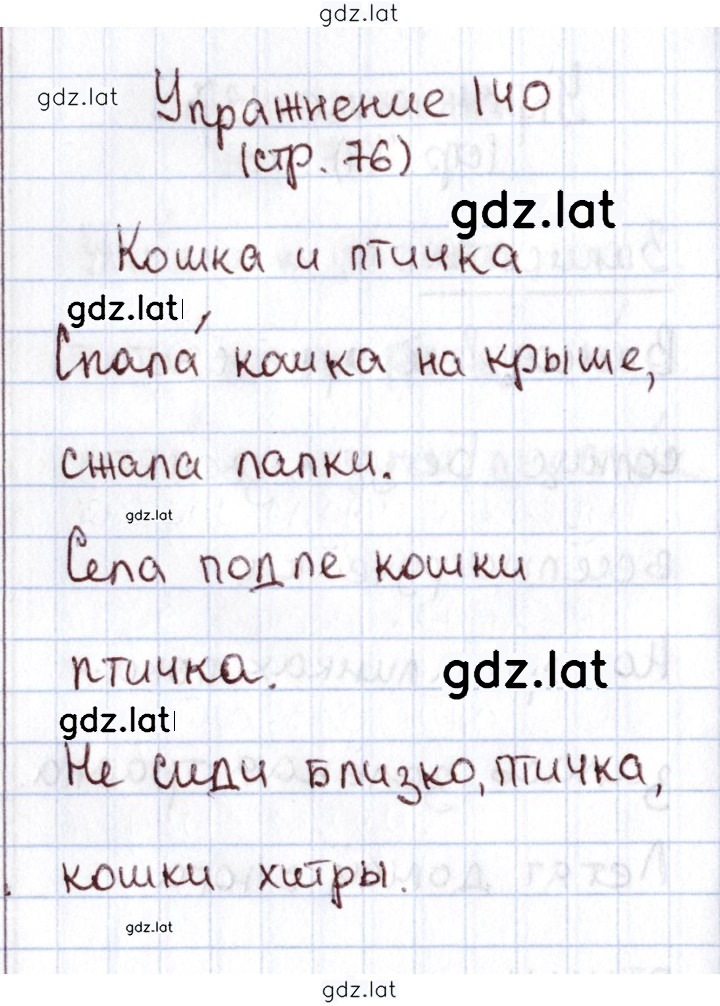 gdz.lat
gdz.lat
Упражнение 140
(стр. 76)
gdz.lat
Кошка и птичка
gdz.lat
Спала кошка на крыше,
сжала лапки.
gdz.lat
Села подле кошки
птичка.
gdz.lat
gdz.lat
Не сиди близко, птичка,
кошки хитры.
gdz.lat
gdz.lat